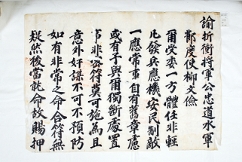 諭折衝將軍公忠道水軍
節度使柳文儉
爾受委一方體任非輕
凡發兵應機安民制敵
一應常事自有舊章慮
或有予與爾獨斷處置
事非密符莫可施爲且
意外奸謀不可不預防
如有非常之命合符無
疑然後當就命故賜押